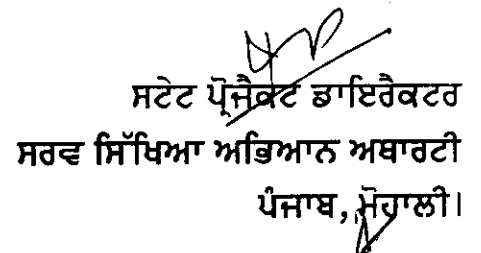 ਸਟੇਟ ਪ੍ਰੋਜੈਕਟ ਡਾਇਰੈਕਟਰ
ਸਰਵ ਸਿੱਖਿਆ ਅਭਿਆਨ ਅਥਾਰਟੀ
ਪੰਜਾਬ, ਮੋਹਾਲੀ।